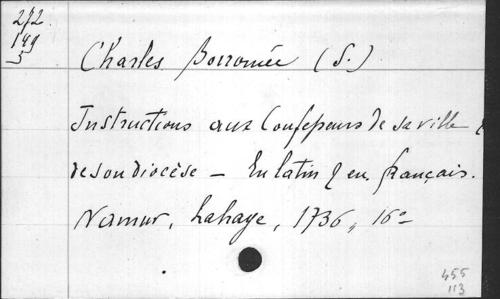 212.
149
5
Charles Borromée (S.)
Instructions aux Confesseurs de sa ville &
de son diocèse – En latin & en français.
Namur, Lahaye, 1736, 16º
455
113